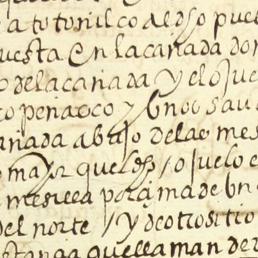 a totonilco al dho pue
uesta en la cañada don
o de la cañada y el ojue
o penasco y unos sau
añada abajo de la o mes
o mayr que el dho / ojuelo e
mesilla por çima de un
del norte / y de otro sitio
estança que llaman de r